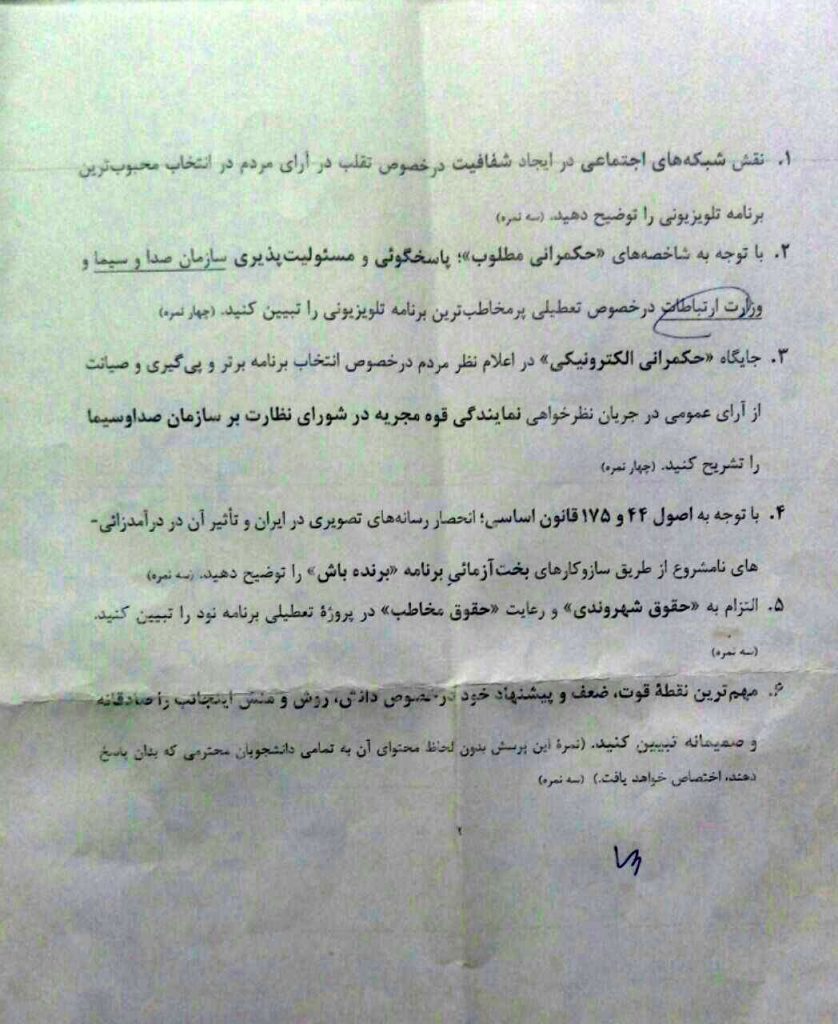 ۱. نقش شبکه‌های اجتماعی در ایجاد شفافیت درخصوص تقلب در آرای مردم در انتخاب محبوب‌ترین
برنامه تلویزیونی را توضیح دهید. (سه نمره)
۲. با توجه به شاخصه‌های «حکمرانی مطلوب»؛ پاسخگوئی و مسئولیت‌پذیری سازمان صدا و سیما و
وزارت ارتباطات درخصوص تعطیلی پرمخاطب‌ترین برنامه تلویزیونی را تبیین کنید. (چهار نمره)
۳. جایگاه «حکمرانی الکترونیکی» در اعلام نظر مردم درخصوص انتخاب برنامه برتر و پی‌گیری و صیانت
از آرای عمومی در جریان نظرخواهی نمایندگی قوه مجریه در شورای نظارت بر سازمان صداوسیما
را تشریح کنید. (چهار نمره)
۴. با توجه به اصول ۴۴ و ۱۷۵ قانون اساسی؛ انحصار رسانه‌های تصویری در ایران و تأثیر آن در درآمدزائی-
های نامشروع از طریق سازوکارهای بخت‌آزمائیِ برنامه «برنده باش» را توضیح دهید. (سه نمره)
۵. التزام به «حقوق شهروندی» و رعایت «حقوق مخاطب» در پروژهٔ تعطیلی برنامه نود را تبیین کنید.
(سه نمره)
۶. مهم‌ترین نقطهٔ قوت، ضعف و پیشنهاد خود درخصوص دانش، روش و منش اینجانب را صادقانه
و صمیمانه تبیین کنید. (نمرهٔ این پرسش بدون لحاظ محتوای آن به تمامی دانشجویان محترمی که بدان پاسخ
دهند، اختصاص خواهد یافت.) (سه نمره)
۲